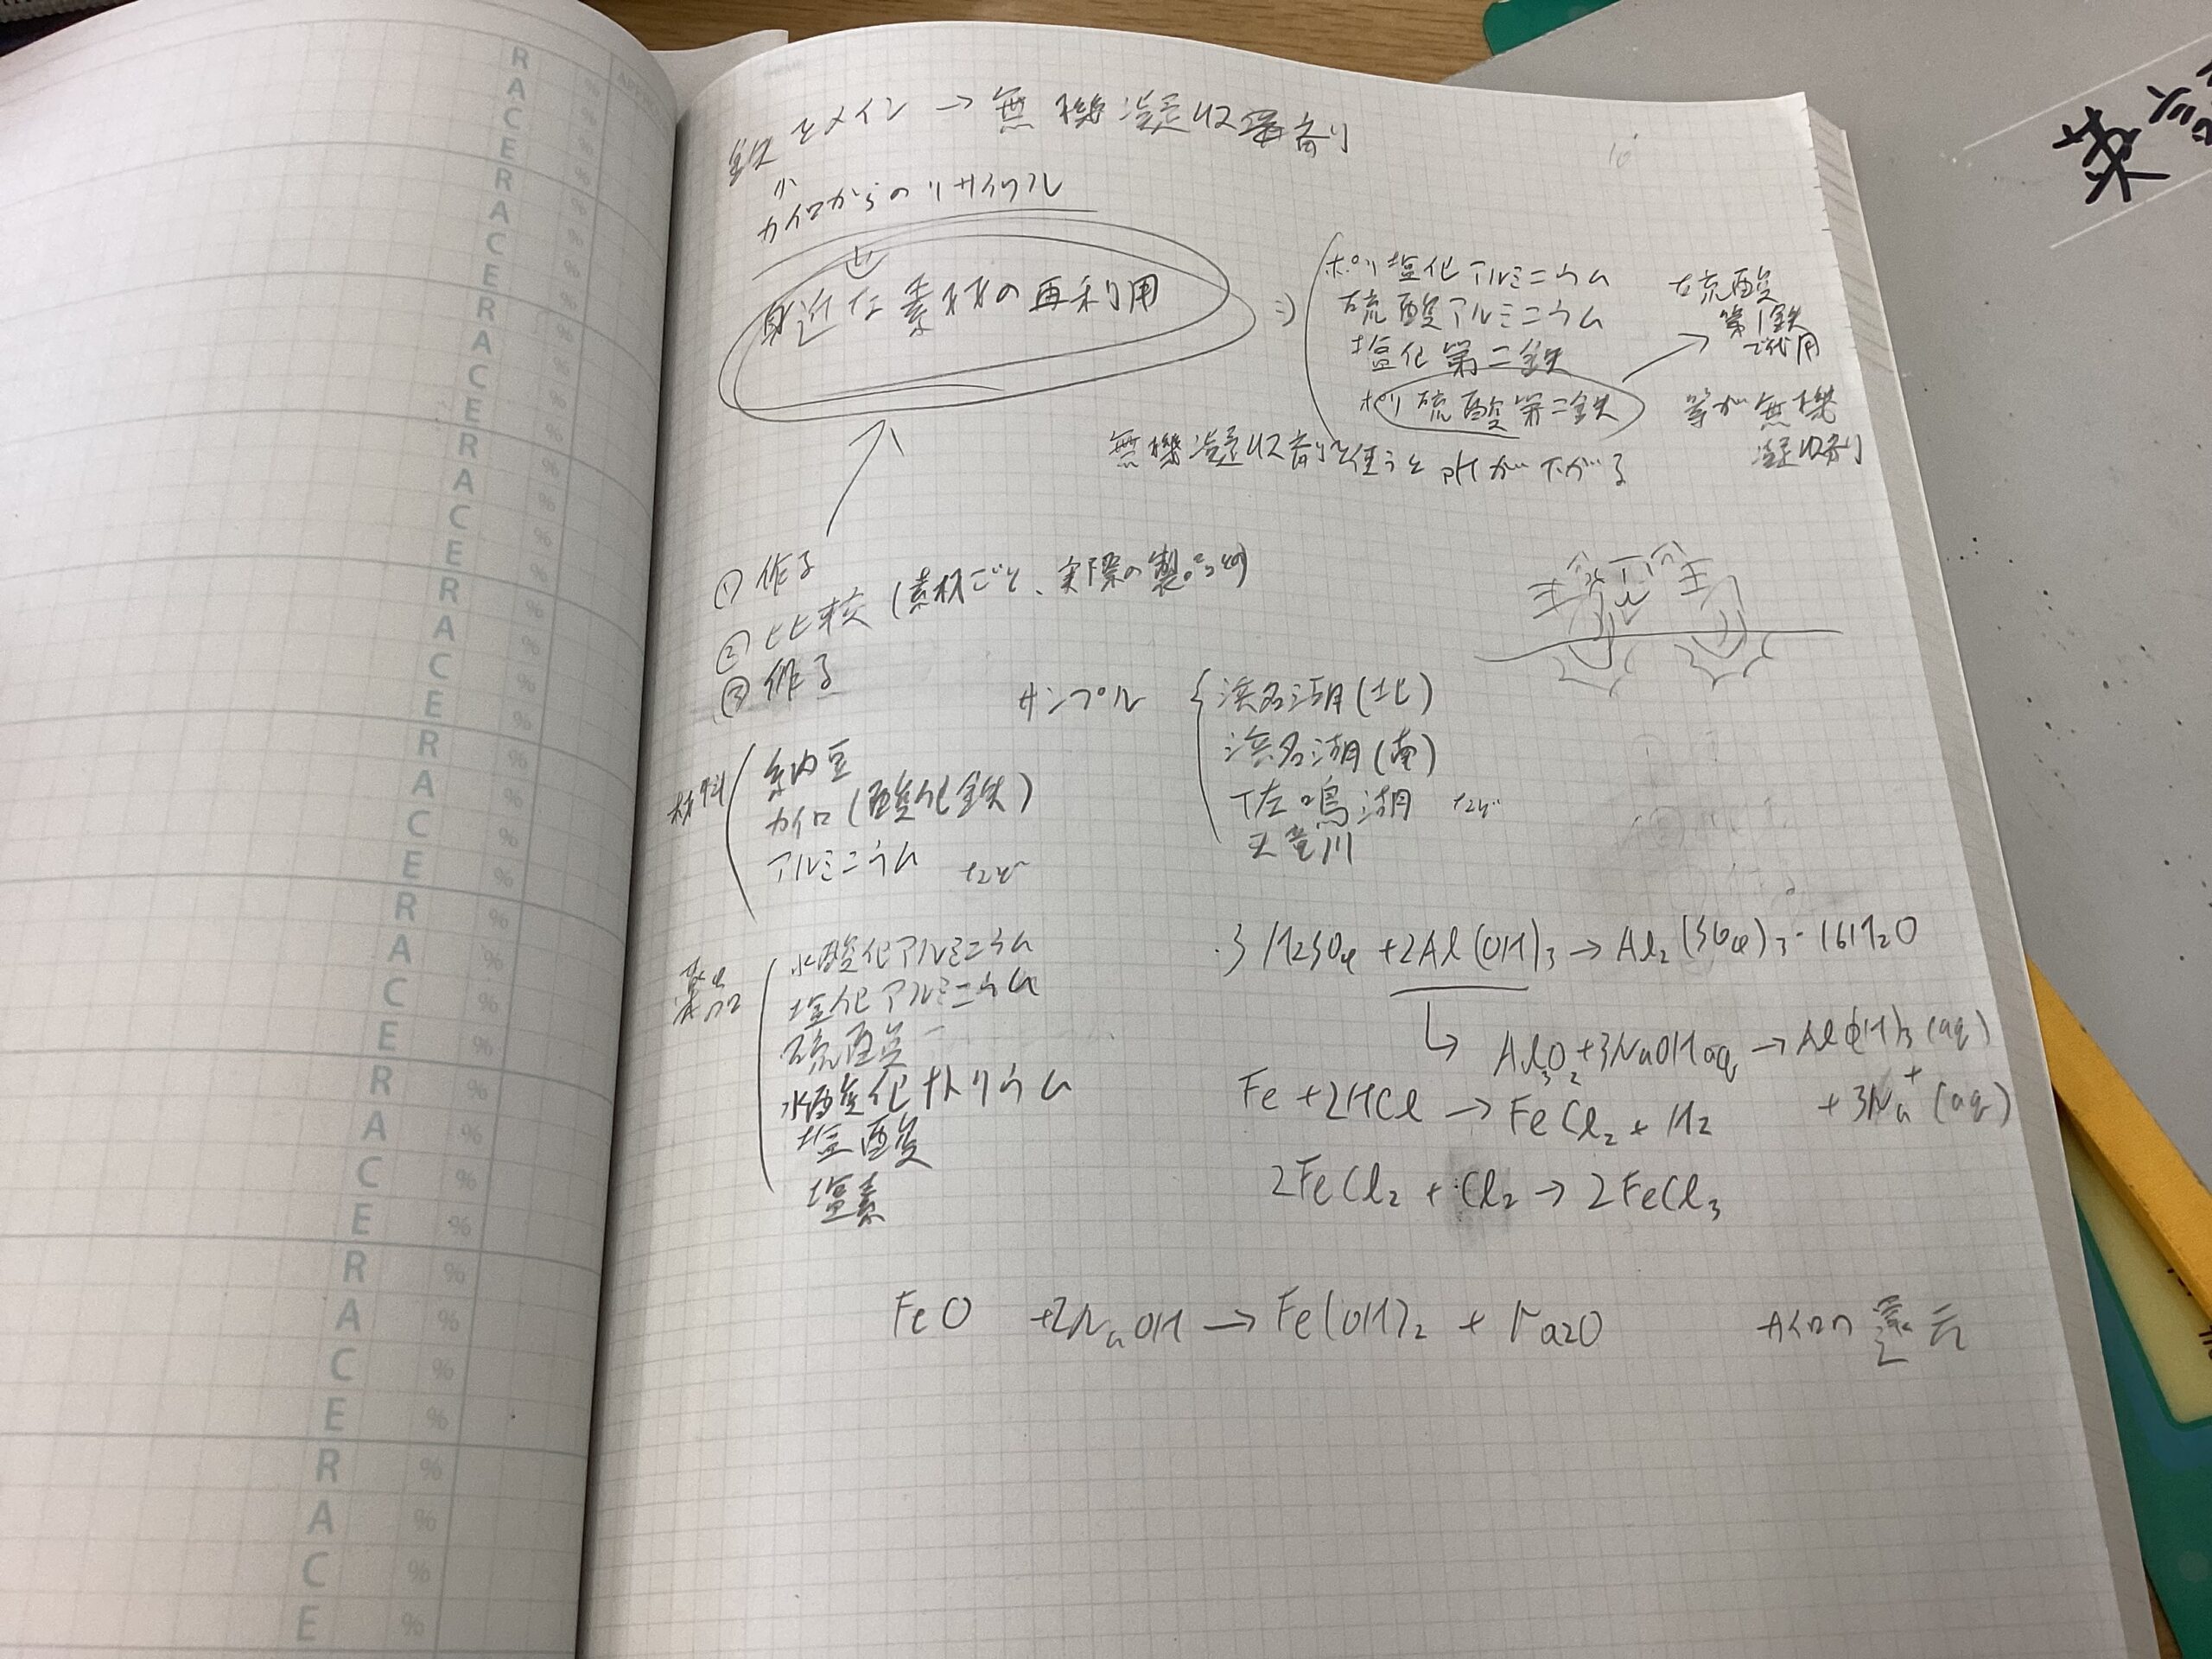 鉄をメイン → 無機凝収剤
〃
カイロからのリサイクル
身近な素材の再利用
⇒
ポリ塩化アルミニウム
硫酸アルミニウム
塩化第二鉄
ポリ硫酸第二鉄
硫酸
第1鉄
で代用
等が無機
凝収剤
無機凝収剤を使うと pHが下がる
① 作る
② 比較 (素材ごと、実際の製品との)
③ 作る
サンプル
浜名湖(北)
浜名湖(南)
佐鳴湖 など
天竜川
材料
納豆
カイロ(酸化鉄)
アルミニウム など
薬品
水酸化アルミニウム
塩化アルミニウム
硫酸
水酸化ナトリウム
塩酸
塩素
3H2SO4 + 2Al(OH)3 → Al2(SO4)3・16H2O
↳ Al3O2 + 3NaOHaq → Al(OH)3(aq)
+ 3Na+(aq)
Fe + 2HCl → FeCl2 + H2
2FeCl2 + Cl2 → 2FeCl3
FeO + 2NaOH → Fe(OH)2 + Na2O
カイロの還元
薬
RACERACERACERACERACERACERACERACERACERACE
%